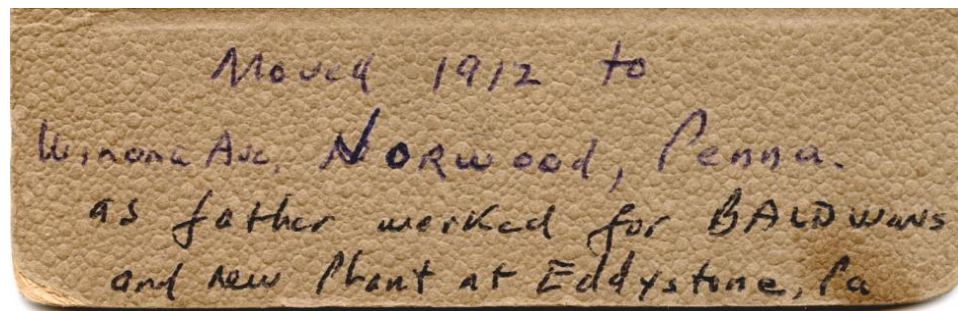 Moved 1912 to
Winona Ave, NORWOOD, Penna.
as father worked for BALDWINS
and new Plant at Eddystone, Pa